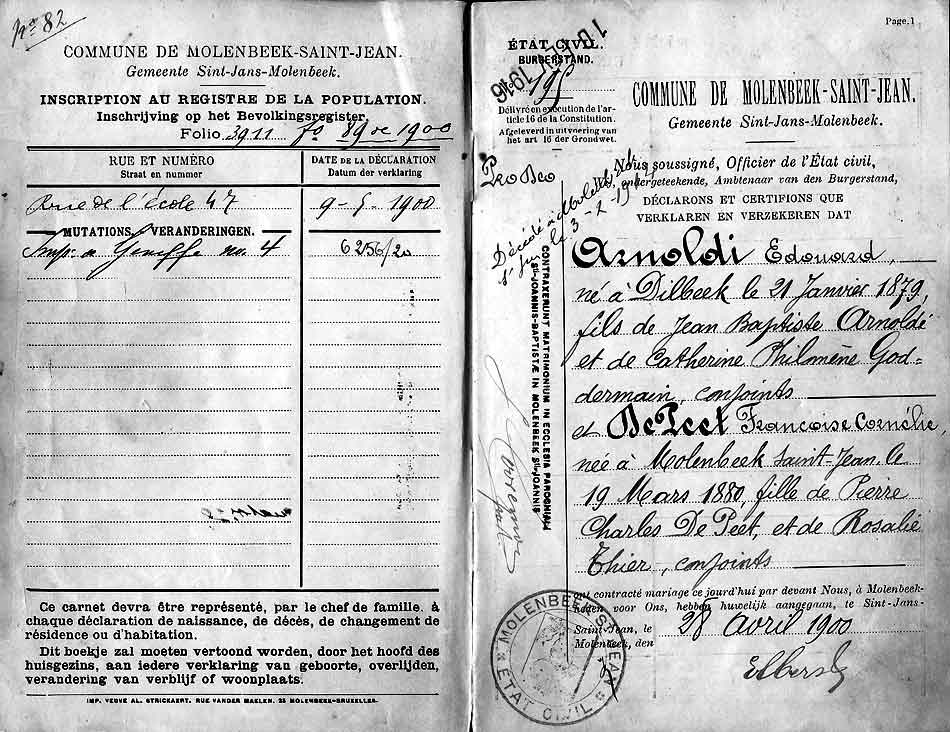 No 82
COMMUNE DE MOLENBEEK-SAINT-JEAN.
Gemeente Sint-Jans-Molenbeek.
INSCRIPTION AU REGISTRE DE LA POPULATION.
Inschrijving op het Bevolkingsregister
Folio 3911 fo 89 de 1900
RUE ET NUMÉRO
Straat en nummer
DATE DE LA DÉCLARATION
Datum der verklaring
Rue de l'école 47
9-5-1900
MUTATIONS, VERANDERINGEN.
no. 4
6256/20
Ce carnet devra être représenté, par le chef de famille, à
chaque déclaration de naissance, de décès, de changement de
résidence ou d'habitation.
Dit boekje zal moeten vertoond worden, door het hoofd des
huisgezins, aan iedere verklaring van geboorte, overlijden,
verandering van verblijf of woonplaats.
IMP. VEUVE AL. STRICKAERT. RUE VANDER MAELEN. 23 MOLENBEEK-BRUXELLES.
Page.1
ÉTAT CIVIL.
BURGERSTAND.
1916
195
Délivré en exécution de l'ar-
ticle 16 de la Constitution.
Afgeleverd in uitvoering van
het art 16 der Grondwet.
Pro Deo
Décédé à
le 3-2-19
CONTRAXERUNT MATRIMONIUM IN ECCLESIA PAROCHIALI
Sti-JOANNIS-BAPTISTÆ IN MOLENBEEK Sti-JOANNIS
COMMUNE DE MOLENBEEK-SAINT-JEAN.
Gemeente Sint-Jans-Molenbeek.
Nous soussigné, Officier de l'État civil,
ondergeteekende, Ambtenaar van den Burgerstand,
DÉCLARONS ET CERTIFIONS QUE
VERKLAREN EN VERZEKEREN DAT
Arnoldi Edouard,
né à Dilbeek le 21 Janvier 1879,
fils de Jean Baptiste Arnoldé
et de Catherine Philomène God-
dermain, conjoints
et De Peet Françoise Cornélie,
née à Molenbeek Saint-Jean, le
19 Mars 1880, fille de Pierre
Charles De Peet, et de Rosalie
Thier, conjoints
ont contracté mariage ce jourd'hui par devant Nous, à Molenbeek-
hebben voor Ons, hebben huwelijk aangegaan, te Sint-Jans-
Saint-Jean, le
Molenbeek, den
28 avril 1900
MOLENBEEK-ST-JEAN
ÉTAT CIVIL